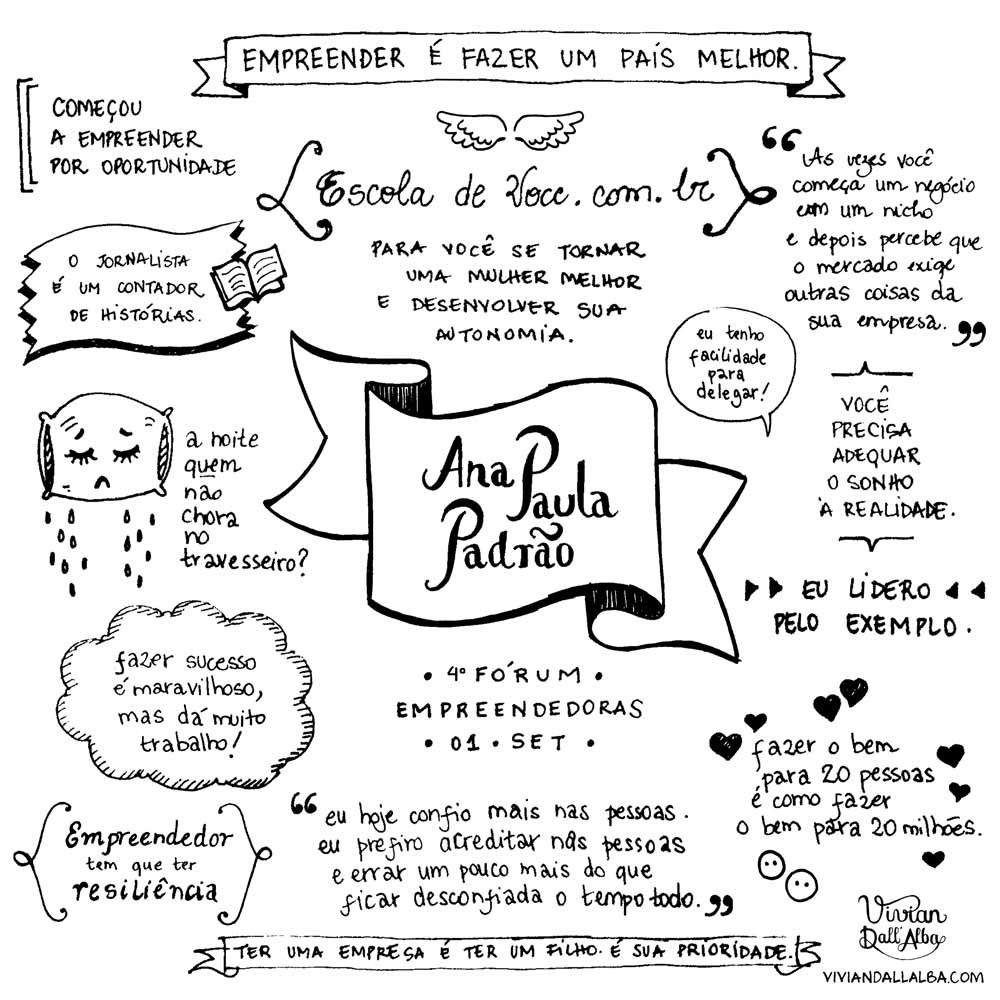 EMPREENDER É FAZER UM PAÍS MELHOR.
COMEÇOU
A EMPREENDER
POR OPORTUNIDADE
Escola de Voce.com.br
PARA VOCÊ SE TORNAR
UMA MULHER MELHOR
E DESENVOLVER SUA
AUTONOMIA.
“As vezes você
começa um negócio
com um nicho
e depois percebe que
o mercado exige
outras coisas da
sua empresa.”
O JORNALISTA
É UM CONTADOR
DE HISTÓRIAS.
eu tenho
facilidade
para
delegar!
VOCÊ
PRECISA
ADEQUAR
O SONHO
À REALIDADE.
a noite
quem
não
chora
no
travesseiro?
Ana Paula
Padrão
EU LIDERO
PELO EXEMPLO.
fazer sucesso
é maravilhoso,
mas dá muito
trabalho!
• 4º FÓRUM •
EMPREENDEDORAS
• 01 • SET •
fazer o bem
para 20 pessoas
é como fazer
o bem para 20 milhões.
Empreendedor
tem que ter
resiliência
“eu hoje confio mais nas pessoas.
eu prefiro acreditar nas pessoas
e errar um pouco mais do que
ficar desconfiada o tempo todo.”
TER UMA EMPRESA É TER UM FILHO. É SUA PRIORIDADE.
Vivian
Dall'Alba
VIVIANDALLALBA.COM